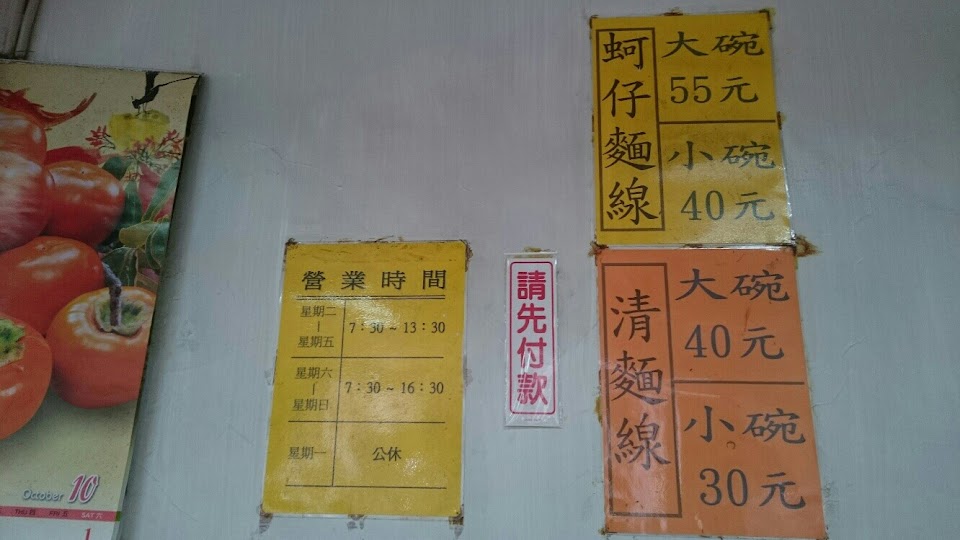 October 10
THU 四 FRI 五 SAT 六
1
營業時間
星期二
|
星期五
7:30~13:30
星期六
|
星期日
7:30~16:30
星期一
公休
請先付款
蚵仔麵線
大碗
55元
小碗
40元
清麵線
大碗
40元
小碗
30元